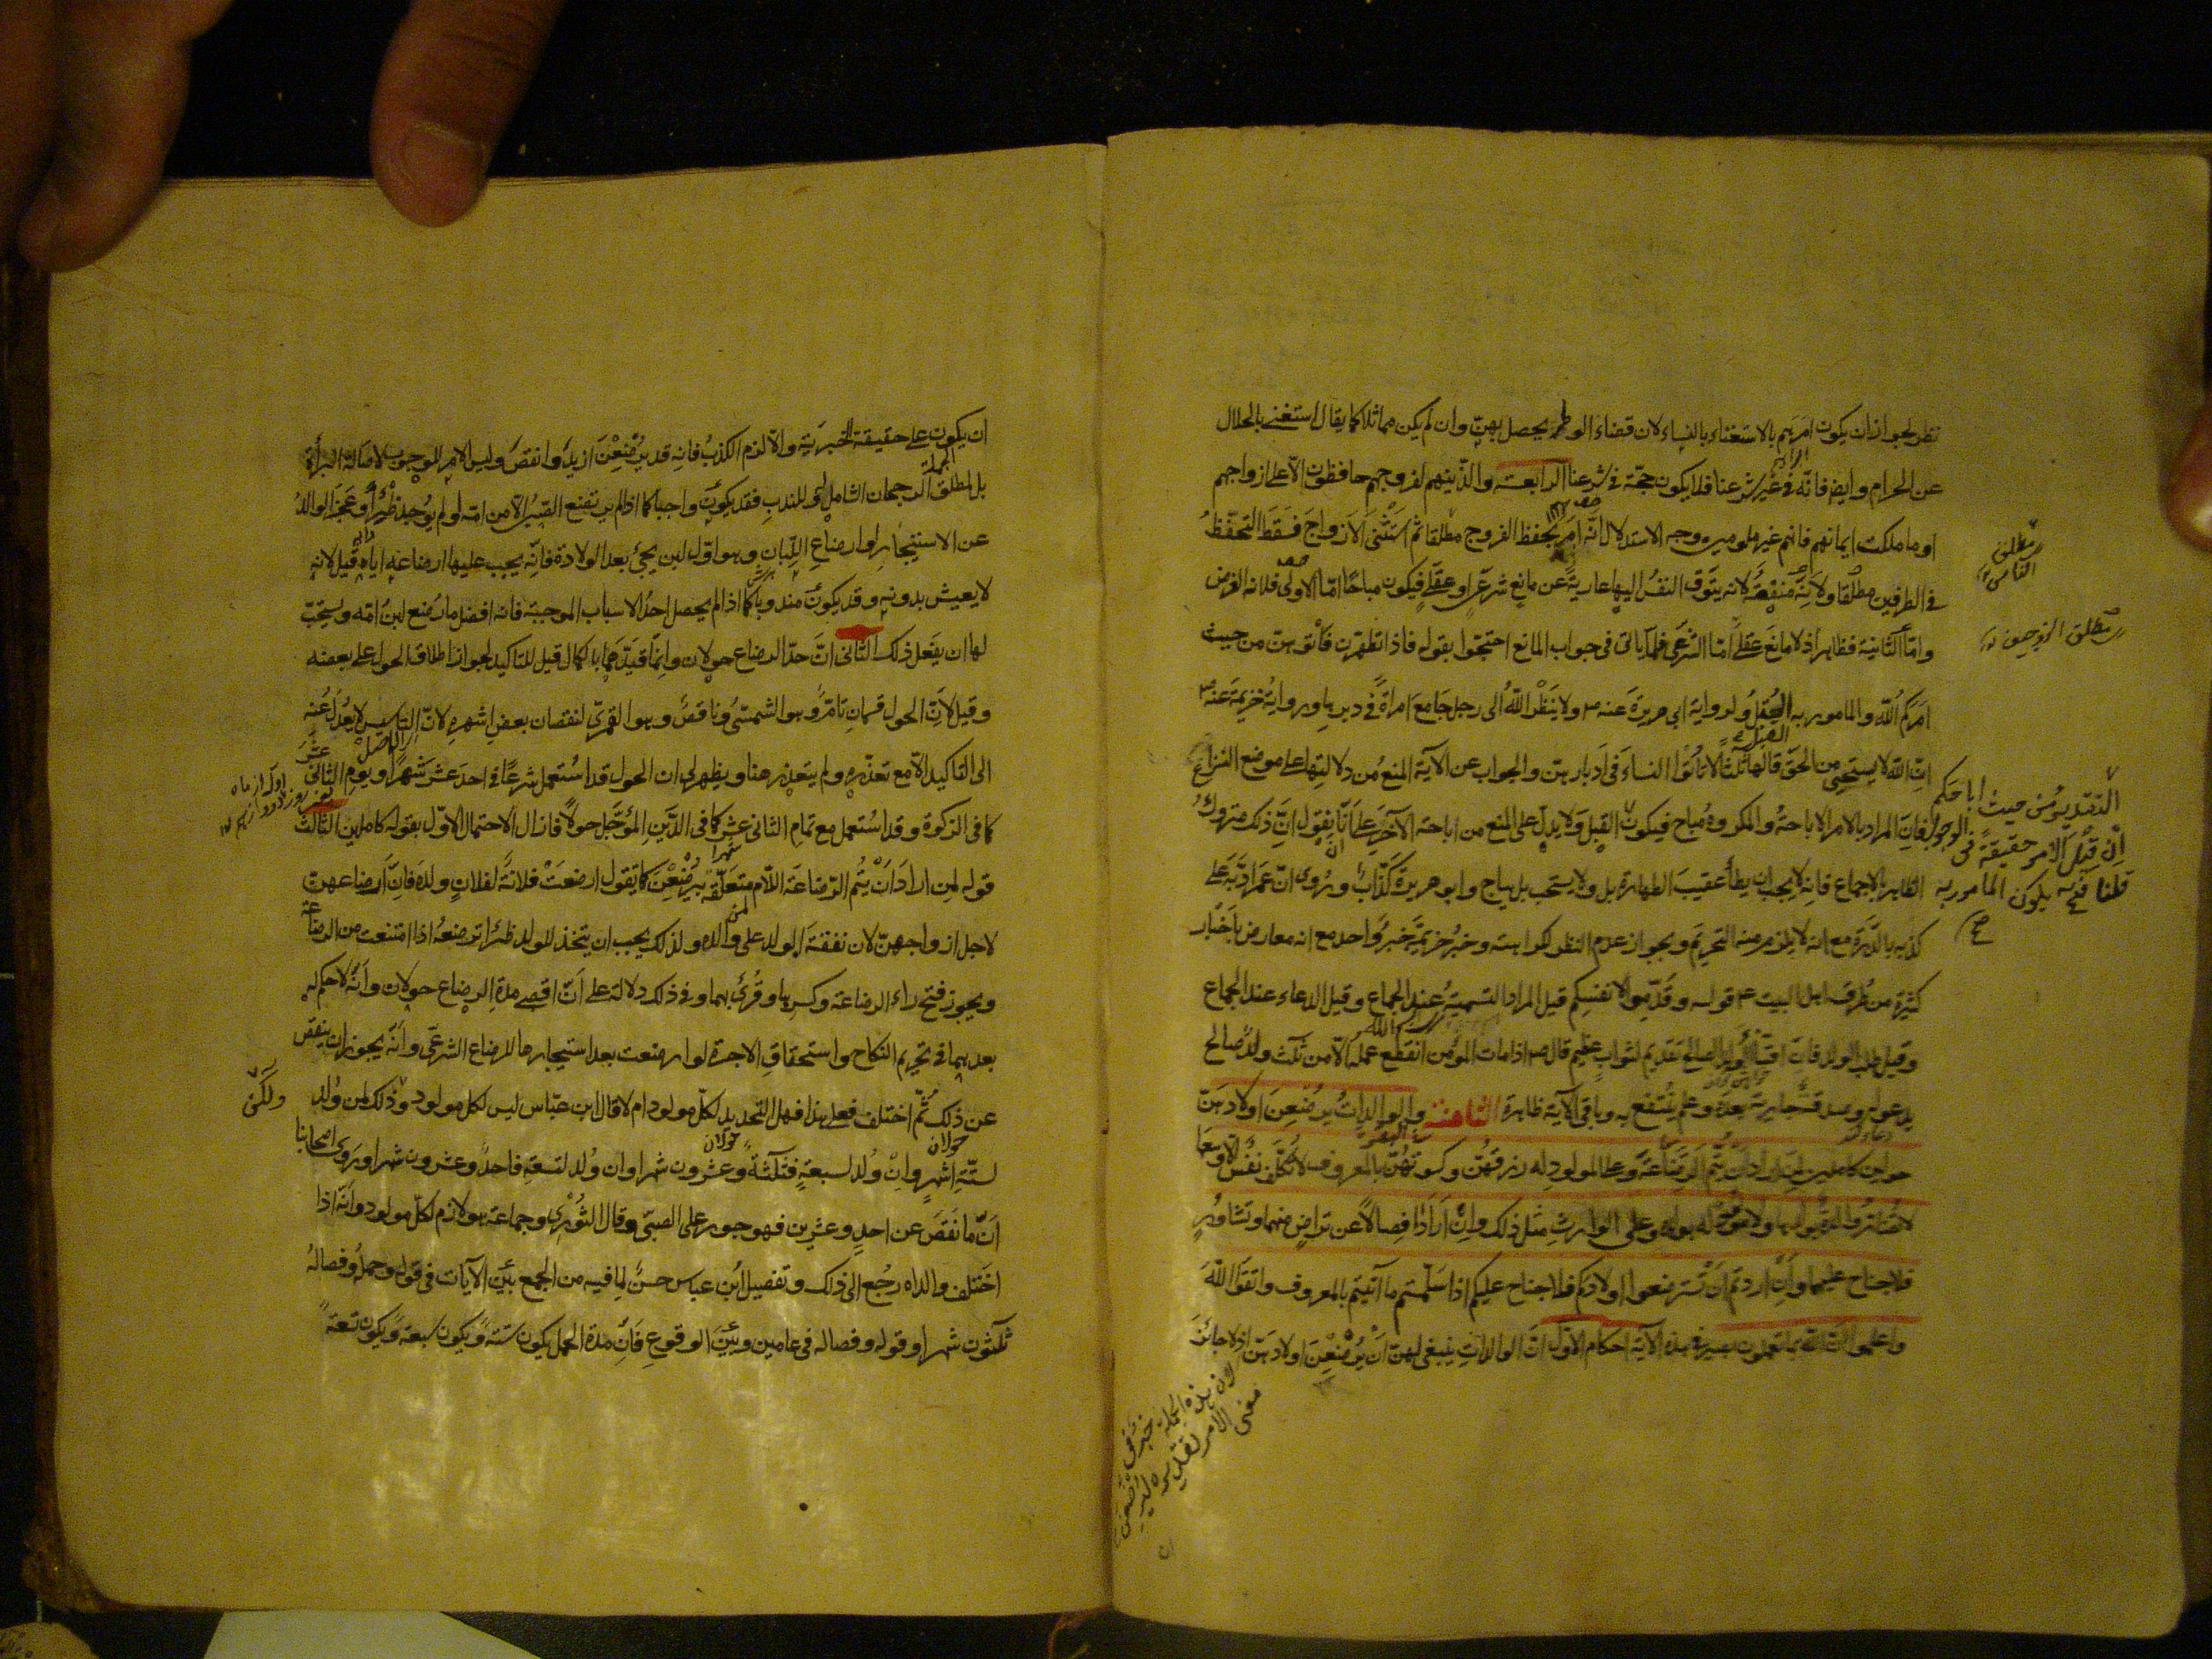 نظر لجواز ان يكون امرهم بالاستغناء بالنساء لان قضاء الوطر يحصل بهن وان لم يكن مماثلا كما يقال استغنے بالحلال
عن الحرام وايضا فانه في غير شرعنا فلا يكون حجّة في شرعنا الرابعة والذين هم لفروجهم حافظون الا على ازواجهم
او ما ملكت ايمانهم فانهم غير ملومين وجه الاستدلال انّه امر بحفظ الفروج مطلقا ثم استثنى الازواج فسقط التحفّظ
في الطرفين مطلقا ولانه منفعة لانه يتوق النفس اليها عارية عن مانع شرعي او عقلي فيكون مباحًا امّا الاولى فلانه الغرض
وامّا الثانية فظاهر اذ لا مانع عقلًا امّا الشرعي فلما ياتى فى جواب المانع احتجّوا بقوله فاذا تطهرن فأتوهن من حيث
امركم الله والمامور به القبل ولرواية ابي هريرة عنه ص ولا ينظر الله الى رجل جامع امراة في دبرها ورواية خزيمة عنه ص
انّ الله لا يستحيي من الحق قالها ثلثًا لا تاتوا النساء في ادبارهن والجواب عن الآية المنع من دلالتها على موضع النزاع
فانّ المراد بالامر الاباحة والمكروه مباح فيكون القبل ولا يدل على المنع من اباحة الآخر على انا نقول ان ذلك متروك
الظاهر بالاجماع فانه لا يجب ان يطأ عقيب الطهارة بل ولا يستحب بل يباح وابو هريرة كذّاب وروى ان عمر ادّبه على
كذبه بالدّرّة مع انه لا يلزم منه التحريم ويجوز عدم النظر لكراهته وخبر خزيمة خبر واحد مع انه معارض باخبار
كثيرة من طرق اهل البيت ع قوله وقدّموا لانفسكم قيل المراد التسمية عند الجماع وقيل الدعاء عند الجماع
وقيل طلب الولد فان اقتناء الولد الصالح تقديم لثواب عظيم قال ص اذا مات المؤمن انقطع عمله الا من ثلث ولد صالح
يدعو له وصدقة جارية بعده وعلم ينتفع به وباقى الآية ظاهرة الثامنة والوالدات يرضعن اولادهن
حولين كاملين لمن اراد ان يتم الرضاعة وعلى المولود له رزقهن وكسوتهن بالمعروف لا تكلف نفس الا وسعها
لا تضار والدة بولدها ولا مولود له بولده وعلى الوارث مثل ذلك وان ارادا فصالًا عن تراض منهما وتشاور
فلا جناح عليهما وان اردتم ان تسترضعوا اولادكم فلا جناح عليكم اذا سلمتم ما آتيتم بالمعروف واتقوا الله
واعلموا ان الله بما تعملون بصير في هذه الآية احكام الاوّل ان الوالدات ينبغى لهن ان يرضعن اولادهن اذ لا جائز
متعلق
متعلق
التقدير من حيث اباحكم
ان قيل الامر حقيقة فى الوجوب
قلنا فح يكون المامور به
صح
ان يكون على حقيقة الخبرية والا لزم الكذب فانه قد يرضعن ازيد وانقص وليس الامر للوجوب لاصالة البرأة
بل لمطلق الرجحان الشامل له وللندب فقد يكون واجبا كما اذا لم يرتضع الصبى الا من امه او لم يوجد ظئر او عجز الوالد
عن الاستيجار او ارضاع اللبان وهو اوّل لبن يجئ بعد الولادة فانّه يجب عليها ارضاعه اياه قيل لانه
لا يعيش بدونه وقد يكون مندوبا كما اذا لم يحصل احد الاسباب الموجبة فانه افضل ما رضع لبن امه ويستحبّ
لها ان يفعل ذلك الثانى انّ حدّ الرضاع حولان وانّما قيّدهما بالكمال قيل للتاكيد لجواز اطلاق الحول على بعضه
وقيل لانّ الحول قسمان تامّ وهو الشمسى وناقص وهو القمرىّ لنقصان بعض اشهره لانّ التاسيس لا يعدل عنه
الى التاكيد الا مع تعذّره ولم يتعذر هنا ويظهر لى ان الحول قد استعمل شرعًا فى احد عشر شهرًا ويوم الثانى عشر
كما فى الزكوة وقد استعمل مع تمام الثانى عشر كما فى الدّين المؤجّل حولًا فازال الاحتمال الاوّل بقوله كاملين الثالث
قوله لمن اراد ان يتم الرضاعة اللّام متعلقة بيرضعن كما تقول ارضعت فلانة لفلان ولده فان ارضاعهن
لاجل ازواجهن لان نفقة الولد على والده ولذلك يجب ان يتخذ للولد ظئرا ترضعه اذا امتنعت من الرضاعة
ويجوز فتح راء الرضاعة وكسرها وقرئ بهما وفى ذلك دلالة على ان اقصى مدة الرضاع حولان وانه لا حكم له
بعدهما فى تحريم النكاح واستحقاق الاجرة لو ارضعت بعد استيجارها للرضاع الشرعى وانه يجوز ان ينقص
عن ذلك ثم اختلف فعلى هذا فهل التحديد لكل مولود ام لا قال ابن عبّاس ليس لكل مولود وذلك لمن ولد
لستة اشهر وان ولد لسبعة فثلثة وعشرون شهرا وان ولد لتسعة فاحد وعشرون شهرا وروى اصحابنا
انّ ما نقص عن احد وعشرين فهو جور على الصبىّ وقال الثورى وجماعة هو لازم لكل مولود وانه اذا
اختلف والداه رجع الى ذلك وتفصيل ابن عباس حسن لما فيه من الجمع بين الآيات فى قوله وحمله وفصاله
ثلثون شهرا وقوله وفصاله فى عامين وبين الوقوع فان مدة الحمل يكون ستة ويكون سبعة ويكون تسعة
ولكن